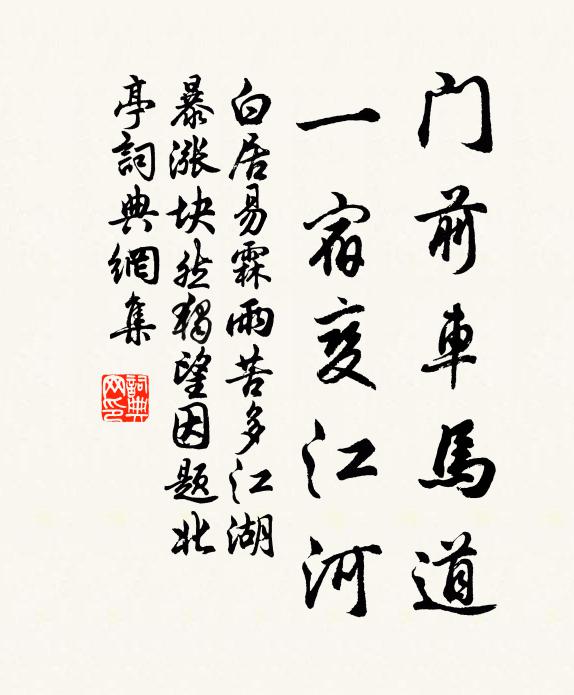 門前車馬道
一宿変江河
白居易霖雨苦多江湖
暴漲块然獨望因題北
亭詞典網集
詞典网印